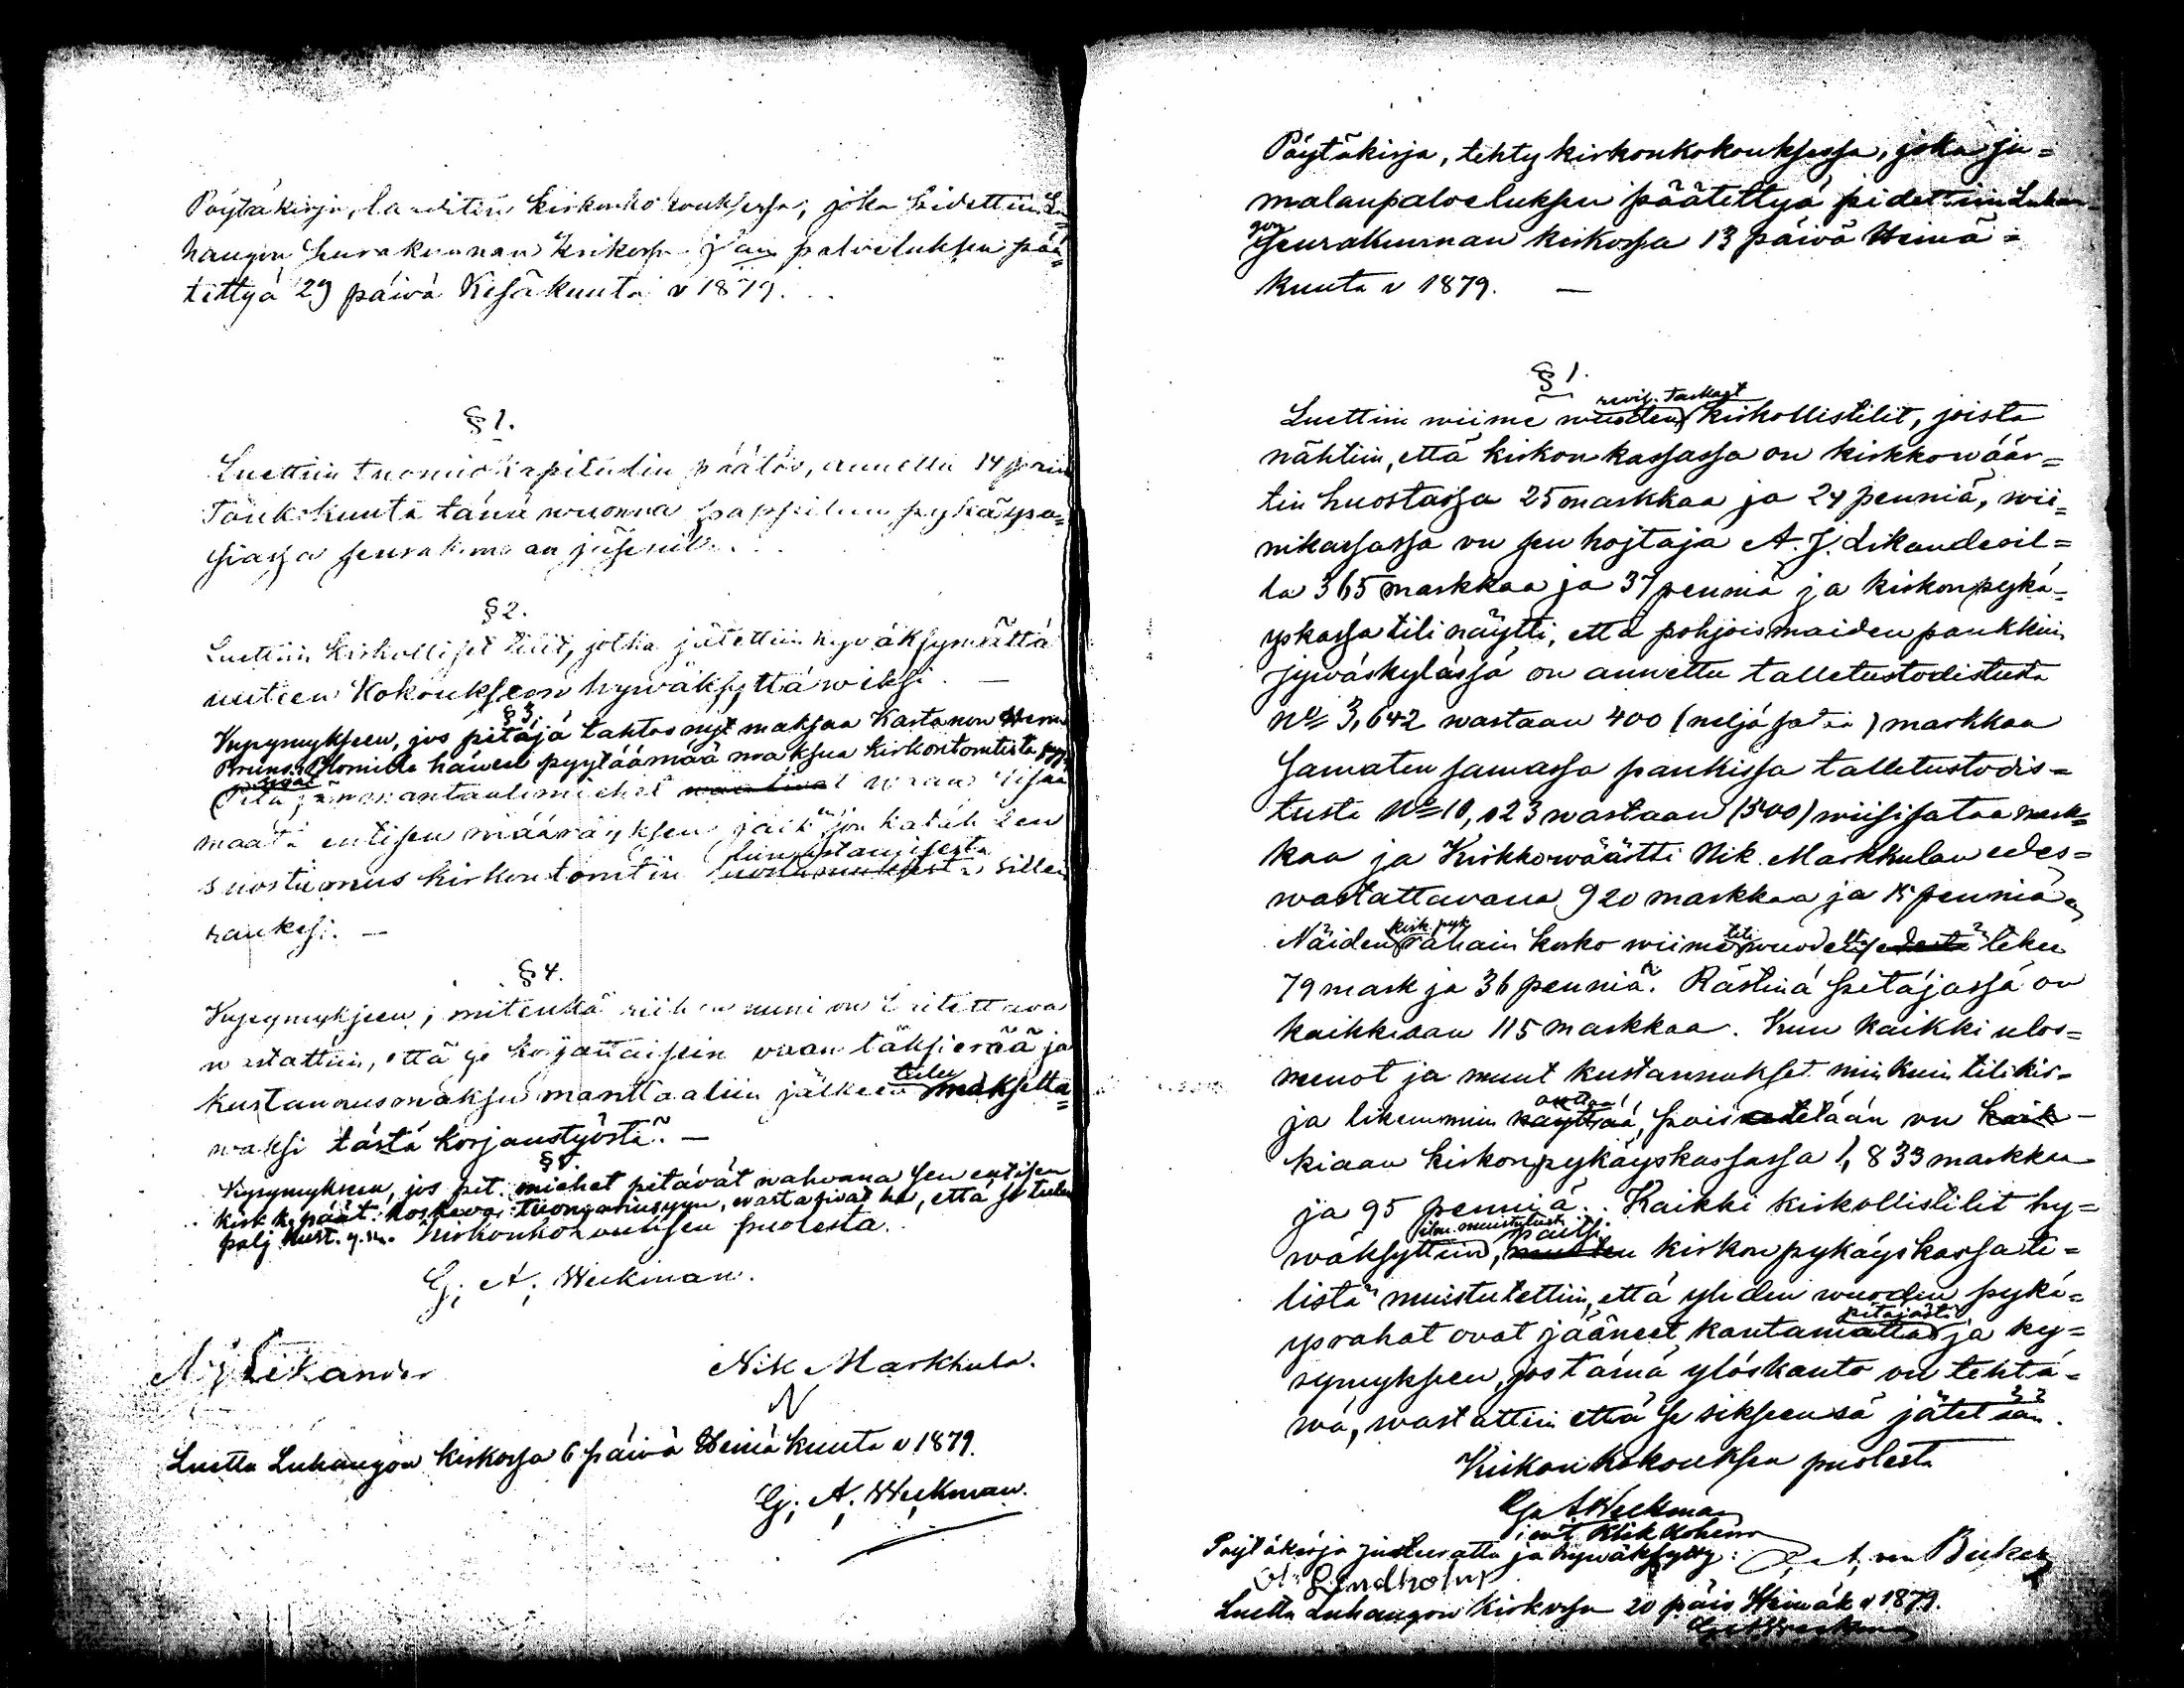 Pöytäkirja, laadittu kirkonkokouksessa, joka pidettiin Lu
hangon seurakunnan kirkossa Jum palveluksen pää=
tettyä 29 päivä Kesäkuuta v 1879.
§ 1.
Luettiin tuomiokapitulin päätös, annettu 14 päivä
Toukokuuta tänä wuonna pappilan pykäysa=
siassa seurakunnan jäsenille.
§ 2.
Luettiin kirkolliset tilit, jotka jätettiin hyväksymättä
uuteen Kokoukseen hywäksyttäwiksi. —
§ 3.
Kysymykseen, jos pitäjä tahtoo nyt maksaa Kartanon Herra
Bruns: Blomille hänen pyytäämää maksua kirkontontista
maata entisen määräyksen
suostumus kirkontontin sillen
raukesi. —
§ 4.
Kysymykseen, mitenkä riihen uuni on laitettava
wastattiin, että se korjattaisiin vaan täksierää ja
kustannusmaksu manttaalin jälkeen tulee maksetta=
waksi tästä korjaustyöstä. —
§ 5.
Kysymykseen, jos pit. miehet pitävät wahwana sen entisen
kirk k. päät: koskewa , wastasivat he, että se tulee
palj kust. y. m. Kirkonkokouksen puolesta.
G; A; Weckman.
A. J. Lekander Nik Markkula.
N
Luettu Luhangon kirkossa 6 päivä Heinäkuuta v 1879.
G; A; Weckman.
Pöytäkirja, tehty kirkonkokouksessa, joka ju=
malanpalveluksen päätettyä pidettiin Luhan=
gon seurakunnan kirkossa 13 päivä Heinä=
kuuta v 1879. —
§ 1.
revis. tarkast
Luettiin wiime wuoden kirkollistilit, joista
nähtiin, että kirkon kassassa on kirkkowäär=
tin huostassa 25 markkaa ja 24 penniä, wii=
nikassassa on sen hojtaja A. J. Lekanderil=
la 365 markkaa ja 37 penniä ja kirkonpykä=
yskassa tili näytti, että pohjoismaiden pankkiin
jywäskylässä on annettu talletustodistusta
No 3,642 wastaan 400 (neljäsataa) markkaa
Samaten samassa pankissa talletustodis=
tusta No 10,023 wastaan (500) wiisisataa mark=
kaa ja Kirkkowäärtti Nik. Markkulan edes=
wastattavana 920 markkaa ja 15 penniä
kirk. pyk tili
Näiden rahain korko wiime wuodelta tekee
79 mark ja 36 penniä. Rästinä pitäjässä on
kaikkiaan 115 markkaa. Kun kaikki ulos=
menot ja muut kustannukset niinkuin tilikir=
ja likemmin osottaa, pois otetään on kaik=
kiaan kirkonpykäyskassassa 1,833 markkaa
ja 95 penniä. Kaikki kirkollistilit hy=
ilm. muistutust. paitsi
wäksyttiin, muuten kirkonpykäyskassa ti=
listä muistutettiin, että yhden wuoden pykä=
pitäjästä
ysrahat ovat jääneet kantamatta ja ky=
symykseen, jos tämä ylöskanto on tehtä=
wä, wastattiin että se sikseensä jätetään.
Kirkonkokouksen puolesta
G A Weckman
Pöytäkirja justeerattu ja hywäksytty:
Lindholm
Luettu Luhangon kirkossa 20 päiv Heinäk v 1879.
G A Weckman